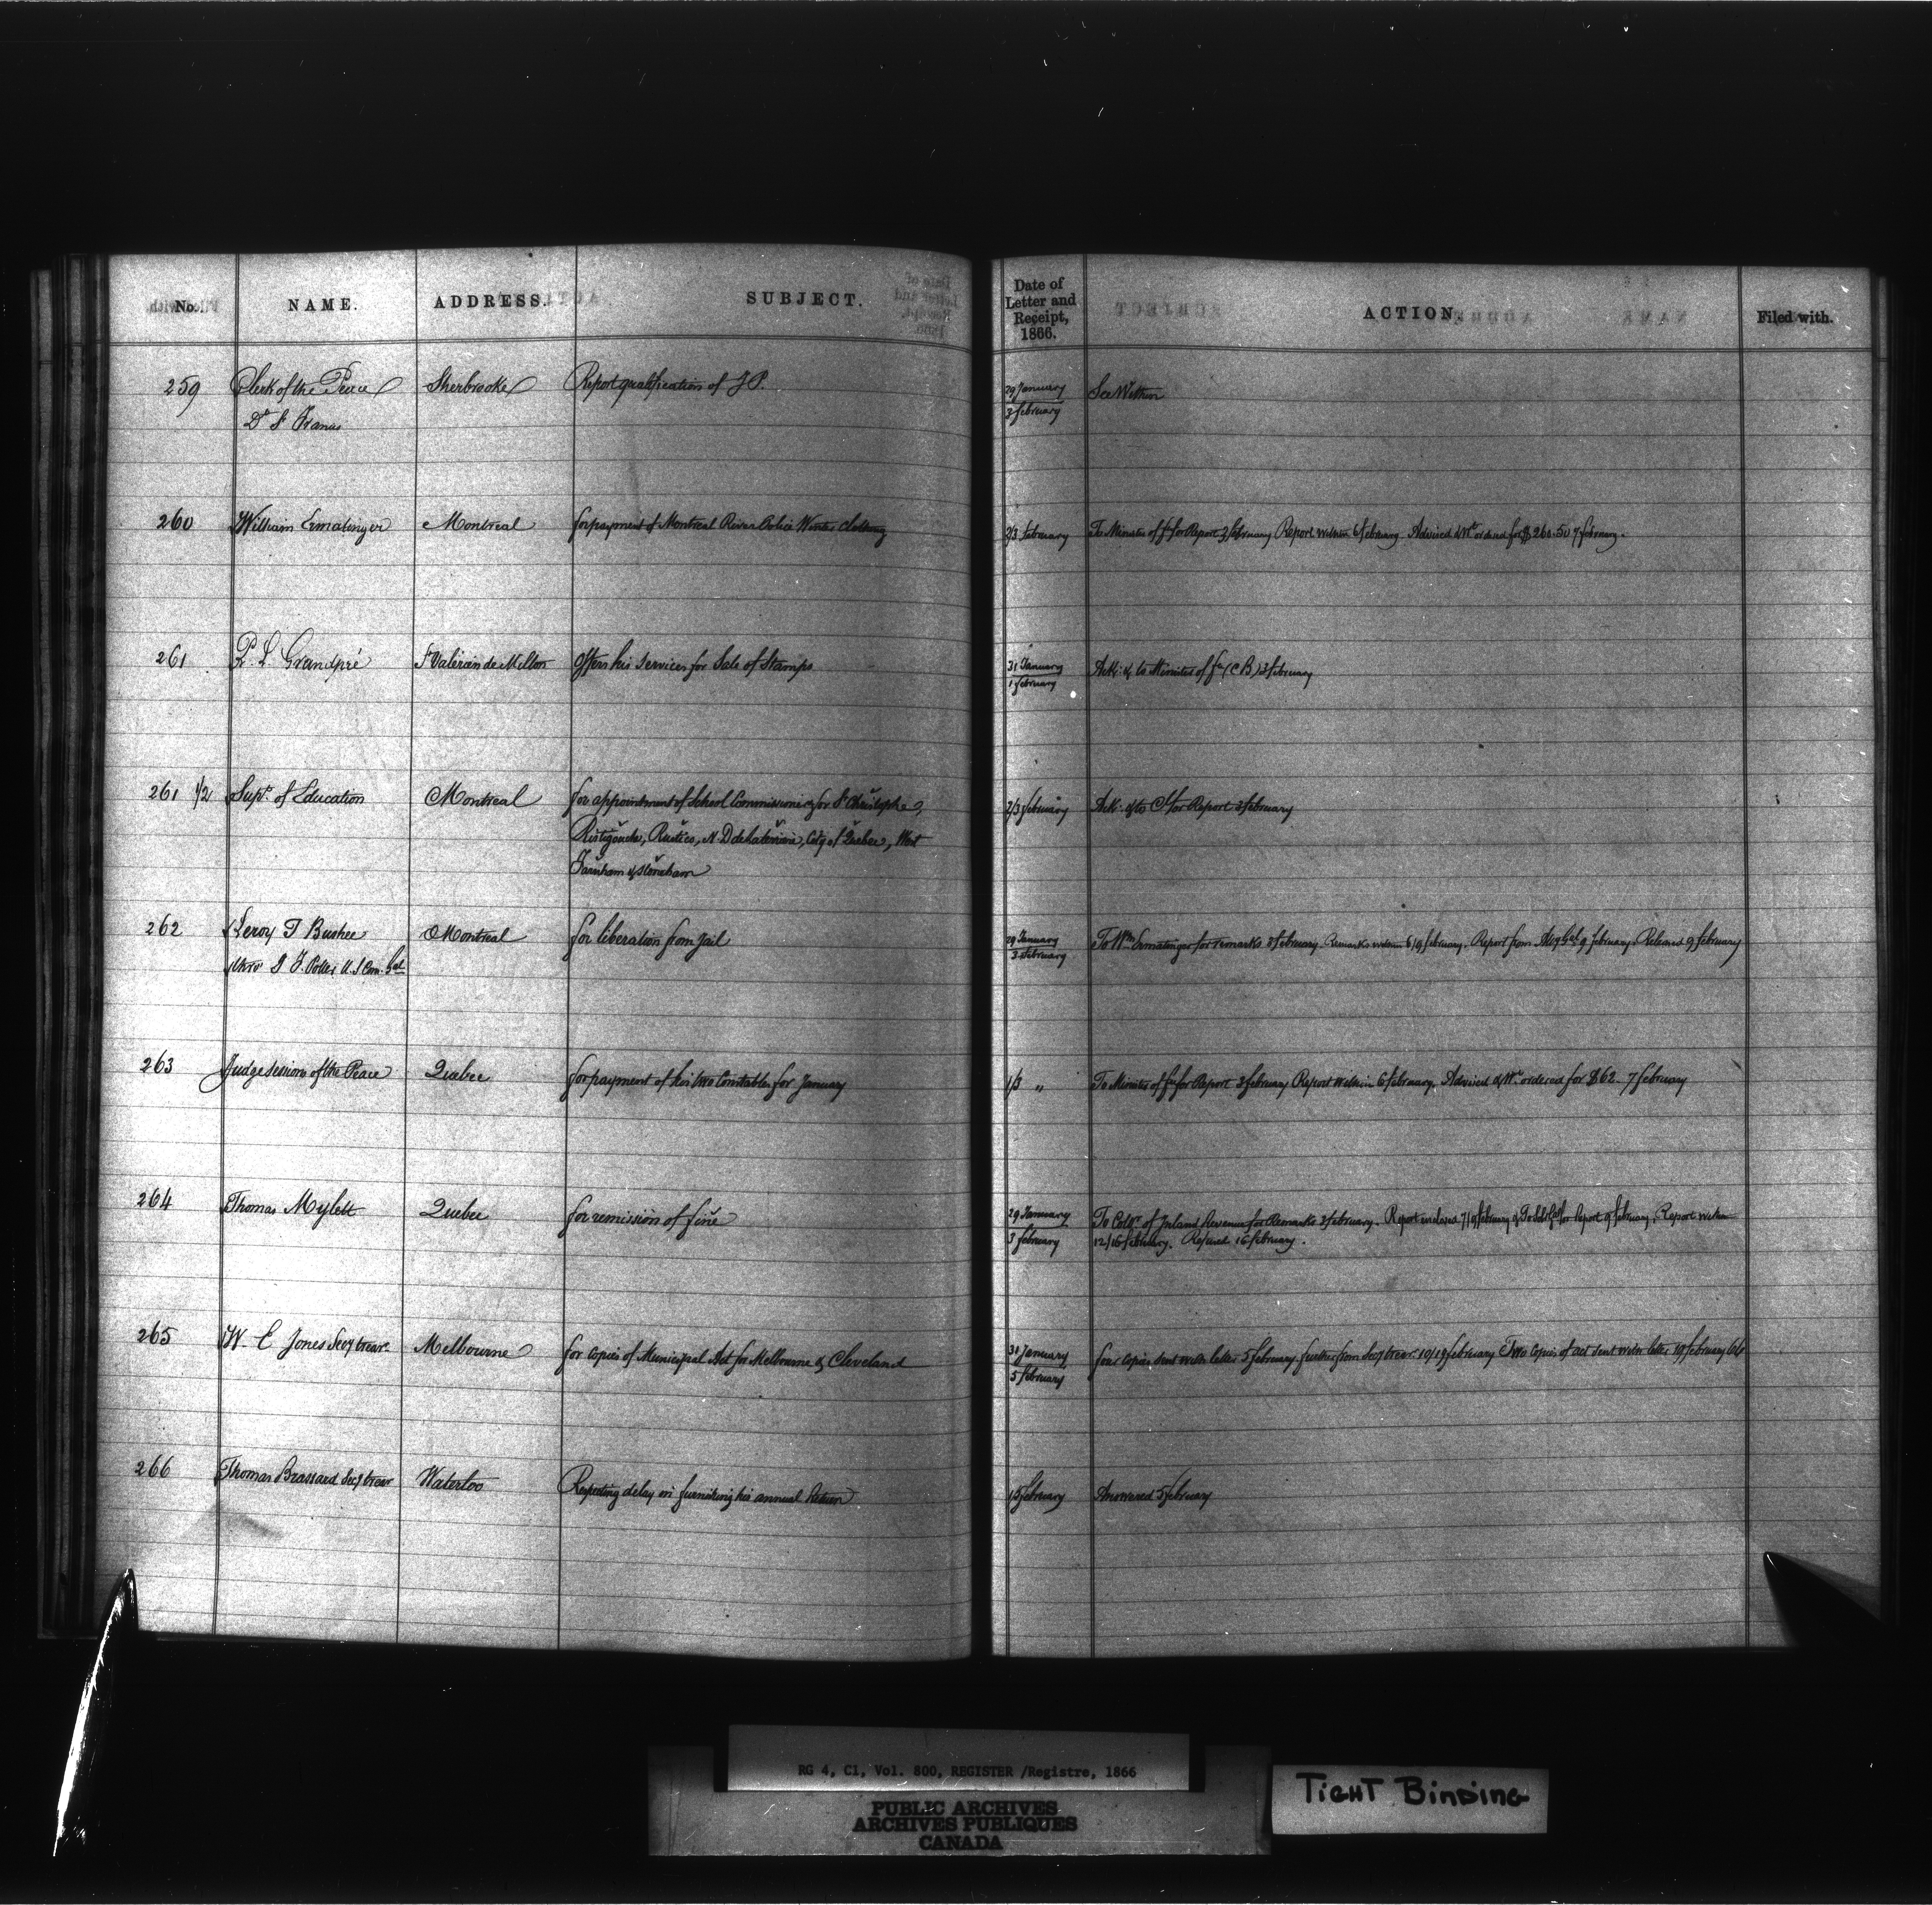 No. NAME. ADDRESS. SUBJECT. Date of Letter and Receipt, 1866. ACTION Filed with.
259 Clerk of the Peace Sherbrooke Report qualification of J P. 29 January See Within
Dt St Francis 3 february
260 William Ermatinger Montreal for payment of Montreal River Police Winter clothing 2/3 february To Minister of fe for Report 3 february Report within 6 february Advised & Wt ordered for $260.50 7 february.
261 P. L. Grandpré St Valérien de Milton Offers his services for Sale of Stamps 31 January Ack: & to Minister of fe (C B) 3 february
1 february
261 1/2 Supt of Education Montreal for appointment of School Commissioners for St Christophe, 2/3 february Ack: & to C for Report 3 february
Ristigouche, Rustico, N. D de , City of Quebec, West
Farnham & Stoneham
262 Leroy T Bushee Montreal for liberation from Jail 29 January To Wm Ermatinger for remarks 3 february. Remarks within 6/9 february. Report from Atty Genl 9 february. Released 9 february
thro' J F. Potter U. S Con. Genl 3 february
263 Judge Sessions of the Peace Quebec for payment of his two Constables for January 1/3 " To Minister of fe for Report 3 february Report within 6 february. Advised & Wt ordered for $62. 7 february
264 Thomas Mylett Quebec for remission of fine 29 January To Colr of Inland Revenue for Remarks 3 february. Report enclosed 7/9 february & To Sol: Genl for Report 9 february. Report within
3 february 12/16 february. Refused 16 february.
265 W. E Jones Secy treasr Melbourne for copies of Municipal Act for Melbourne & Cleveland 31 January four copies sent with letter 5 february further from Secy treasr 10/19 february Two Copies of act sent with letter 19 february
5 february
266 Thomas Brassard Secy treasr Waterloo Respecting delay in furnishing his annual Return 1/5 february Answered 5 february
RG 4, C1, Vol. 800, REGISTER /Registre, 1866
PUBLIC ARCHIVES
ARCHIVES PUBLIQUES
CANADA
TIGHT BINDING